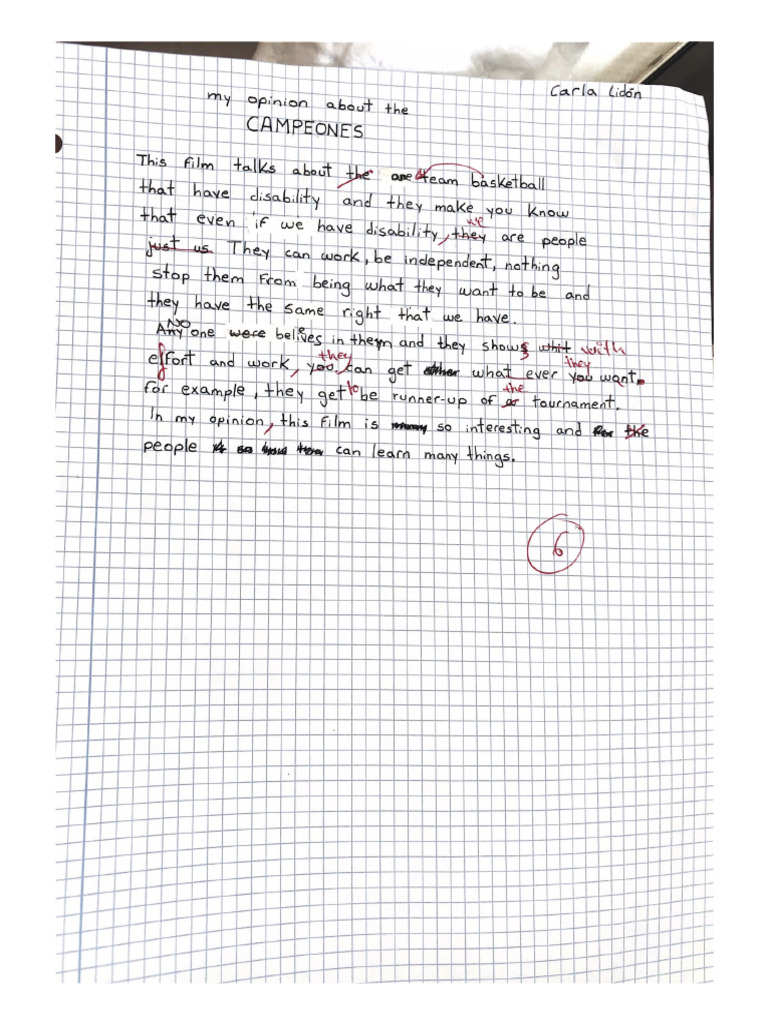 Carla Lidón
my opinion about the
CAMPEONES
This film talks about the a team basketball
that have disability and they make you know
we
that even if we have disability, they are people
just us. They can work, be independent, nothing
stop them from being what they want to be and
they have the same right that we have.
NO
Any one were belives in them and they shows whit with
they they
effort and work, you can get what ever you want.
to the
for example, they get be runner-up of tournament.
In my opinion, this film is so interesting and the
people can learn many things.
6